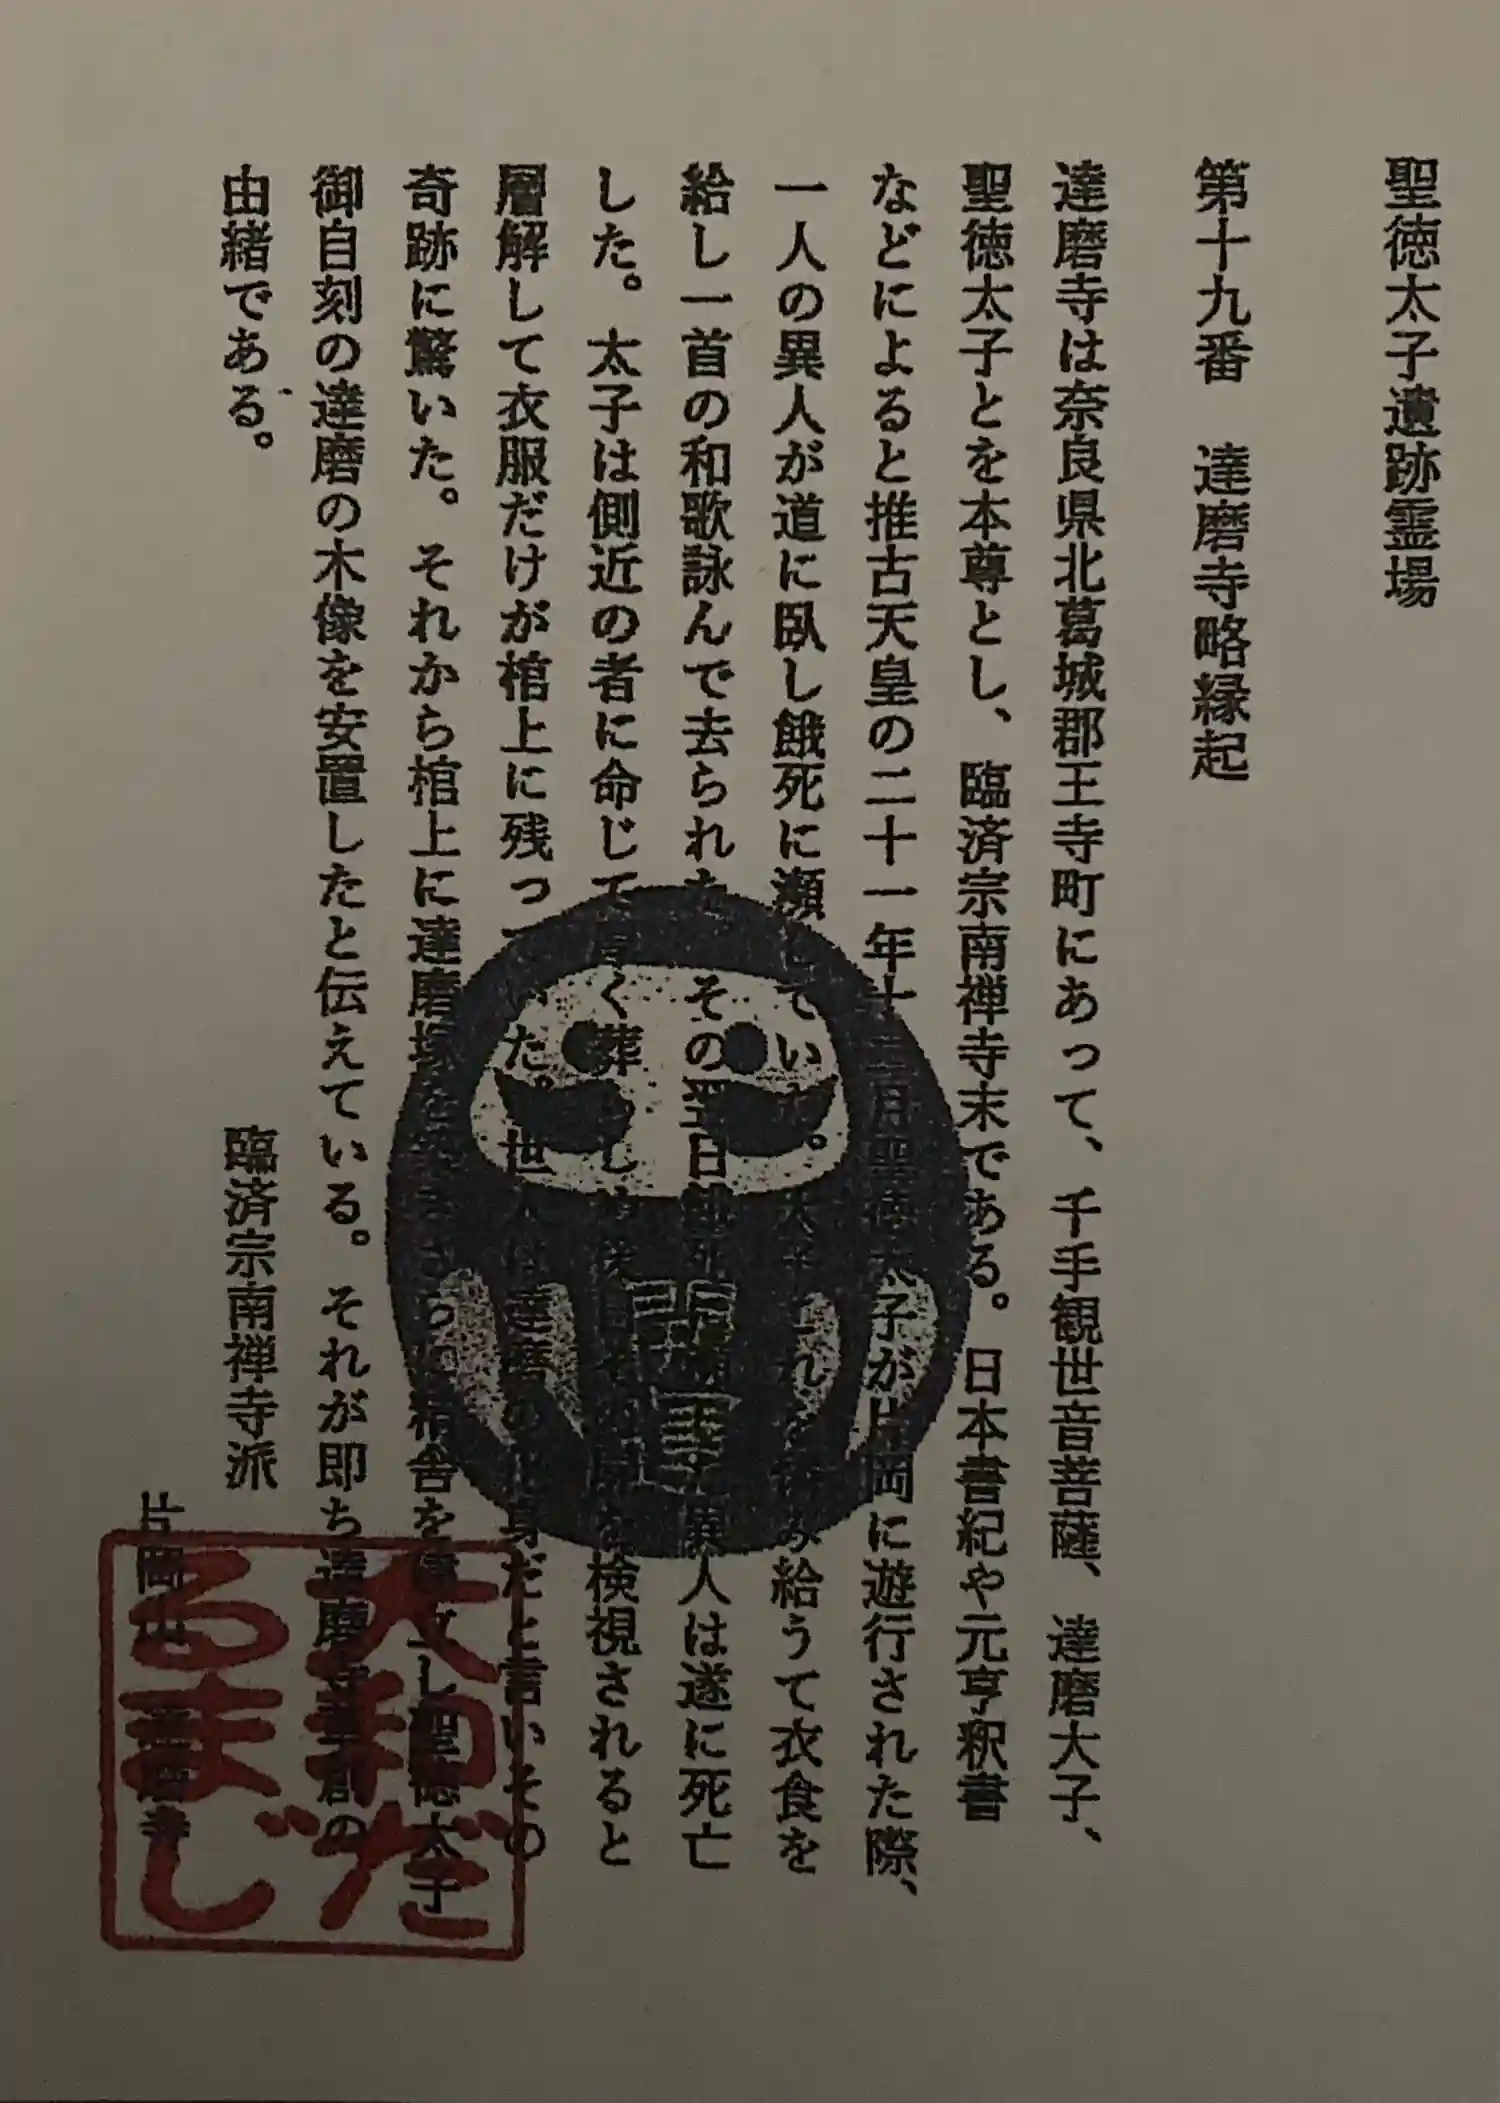 聖徳太子遺跡霊場
第十九番　達磨寺略縁起
達磨寺は奈良県北葛城郡王寺町にあって、千手観世音菩薩、達磨大子、
聖徳太子とを本尊とし、臨済宗南禅寺末である。日本書紀や元亨釈書
などによると推古天皇の二十一年十二月聖徳太子が片岡に遊行された際、
一人の異人が道に臥し餓死に瀬していた。太子これを憐み給うて衣食を
給し一首の和歌詠んで去られた。その翌日餓死に瀕した異人は遂に死亡
した。太子は側近の者に命じて厚く葬らしめ後日その墓を検視されると
層解して衣服だけが棺上に残っていた。世人は達磨の化身だと言いその
奇跡に驚いた。それから棺上に達磨塚を築きさらに精舎を建立し聖徳太子
御自刻の達磨の木像を安置したと伝えている。それが即ち達磨寺草創の
由緒である。
臨済宗南禅寺派
片岡山　達磨寺
大和だ
るまじ